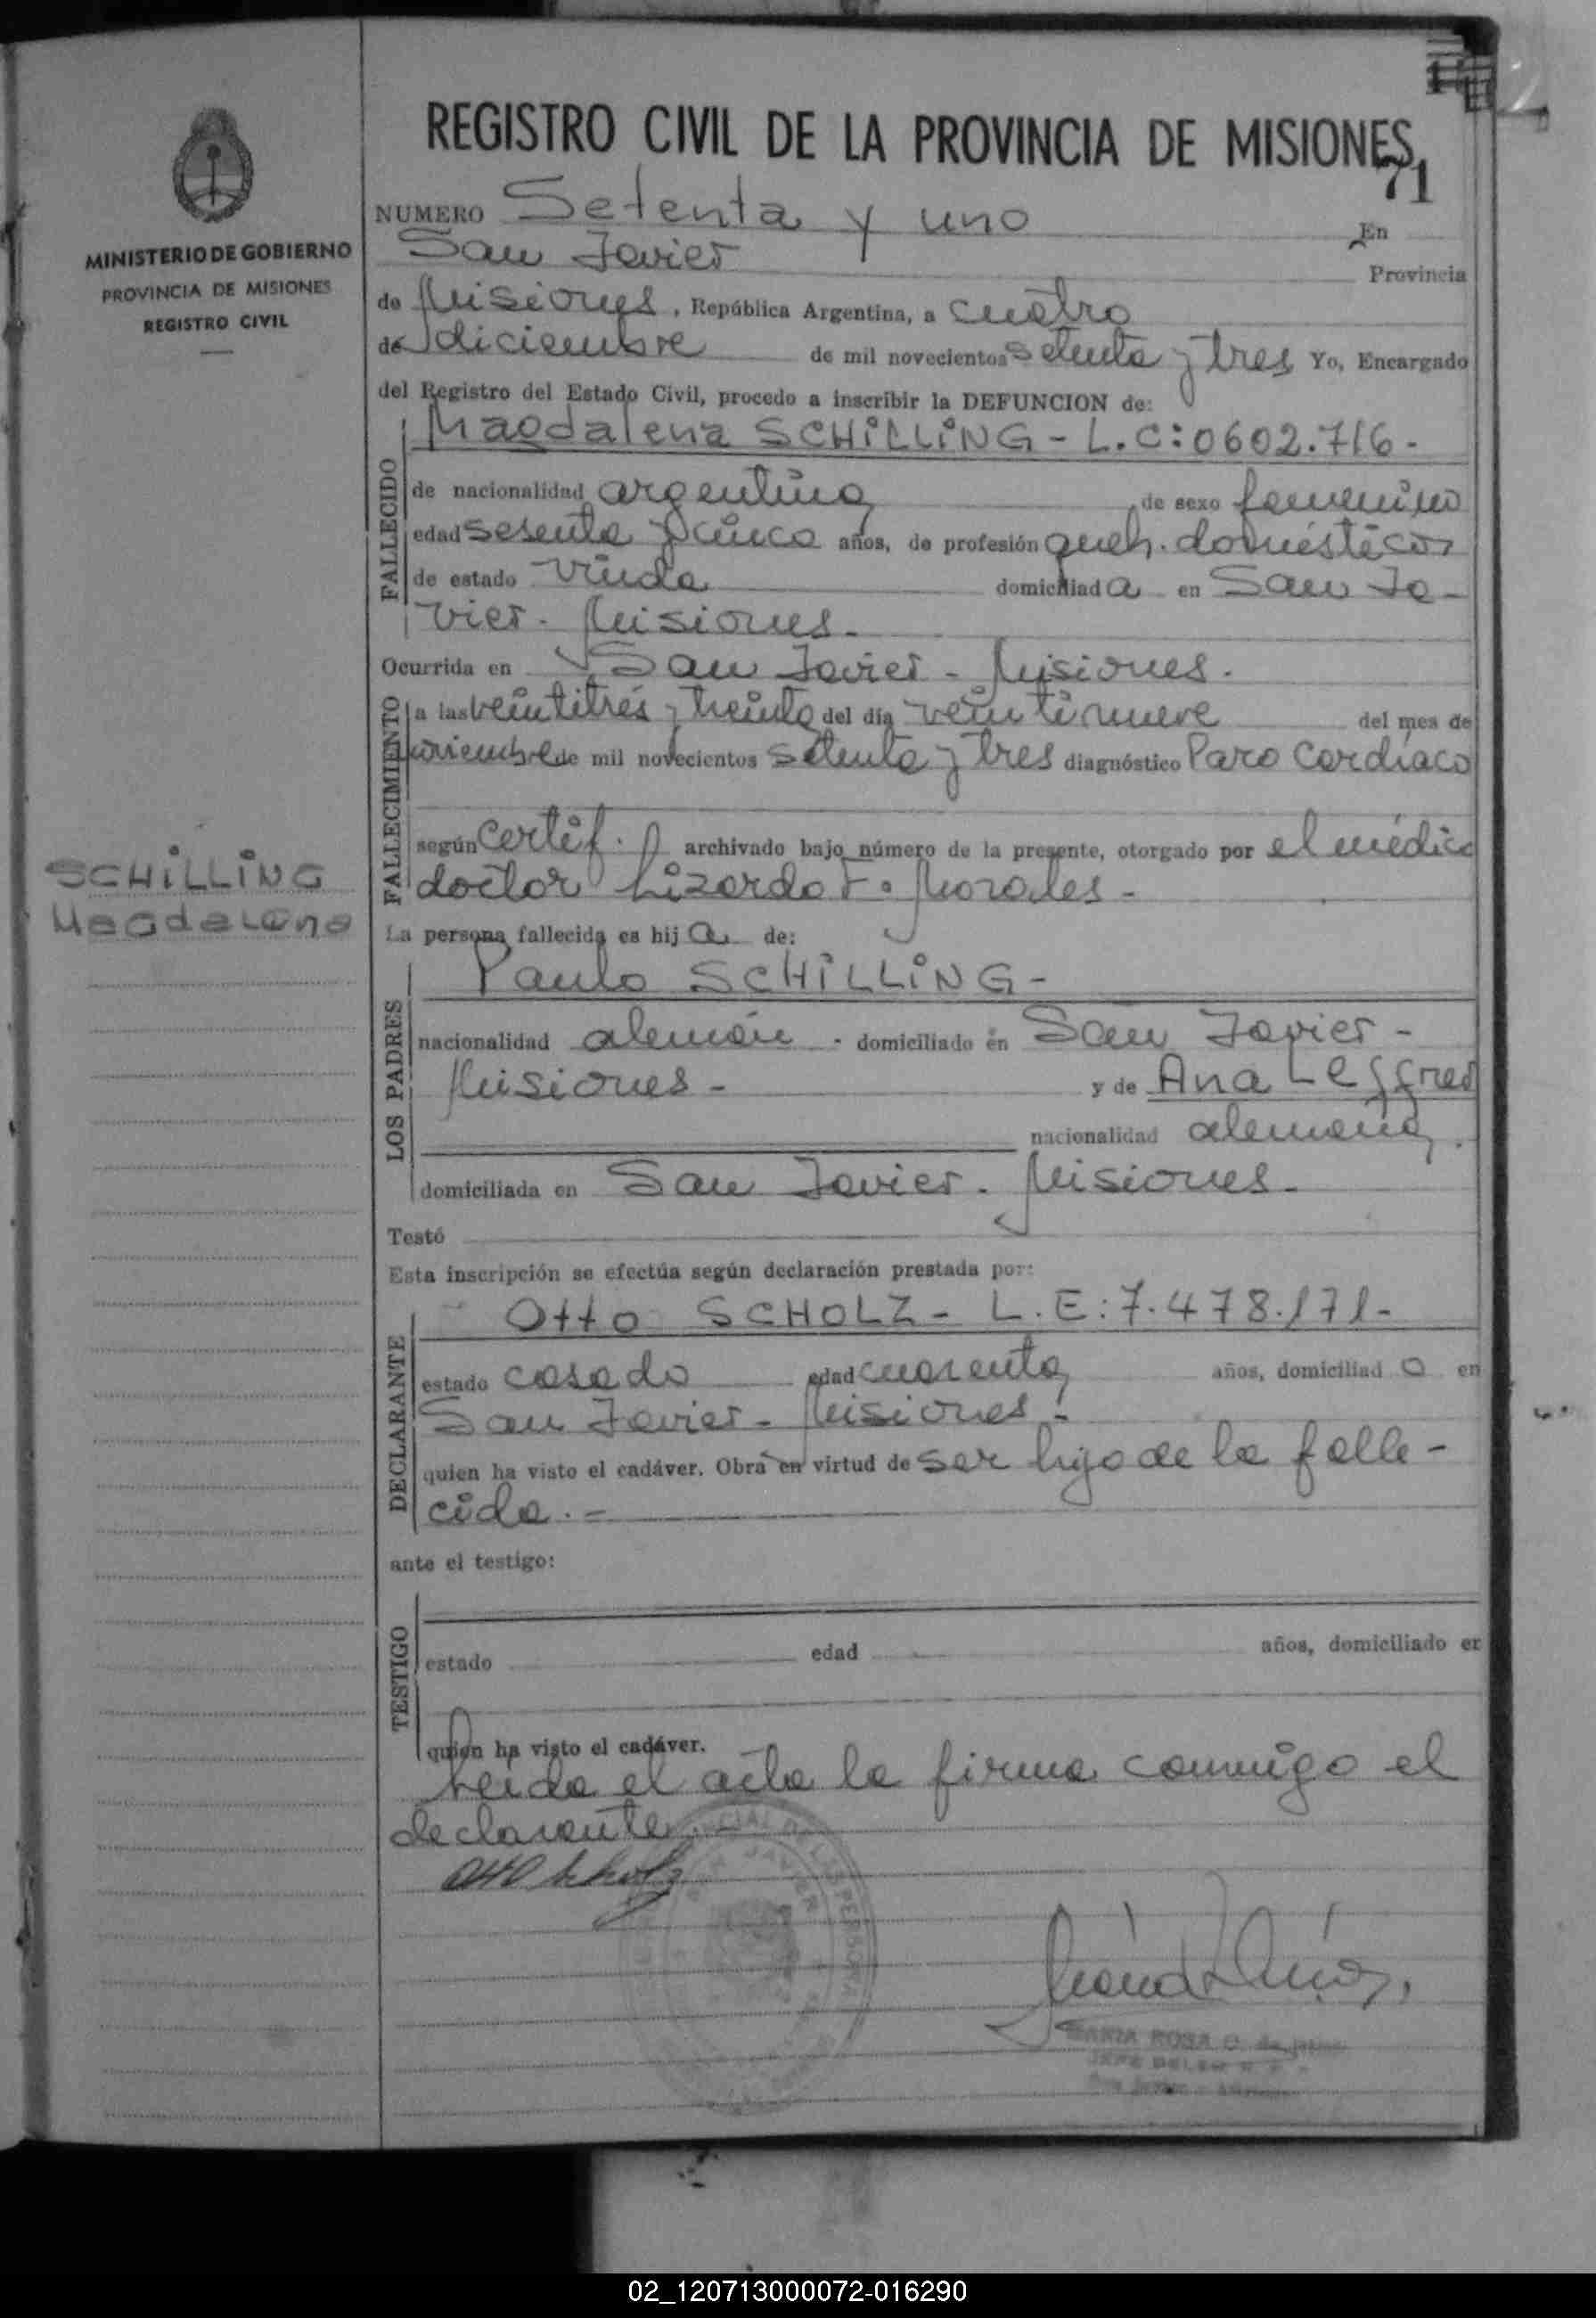 REGISTRO CIVIL DE LA PROVINCIA DE MISIONES
71
MINISTERIO DE GOBIERNO
PROVINCIA DE MISIONES
REGISTRO CIVIL
NUMERO Setenta y uno En
San Javier Provincia
de Misiones, República Argentina, a cuatro
de diciembre de mil novecientos setenta y tres Yo, Encargado
del Registro del Estado Civil, procedo a inscribir la DEFUNCION de:
FALLECIDO
Magdalena SCHiLLiNG - L.C: 0602.716 -
de nacionalidad argentina de sexo femenino
edad sesenta y cinco años, de profesión queh. domésticos
de estado viuda domiciliada en San Ja-
vier. Misiones.
Ocurrida en San Javier - Misiones.
FALLECIMIENTO
a las veintitrés y treinta del día veintinueve del mes de
noviembre de mil novecientos setenta y tres diagnóstico Paro Cardíaco
según certif. archivado bajo número de la presente, otorgado por el médico
doctor Lizardo F. Morales -
SCHiLLiNG
Magdalena
La persona fallecida es hija de:
LOS PADRES
Paulo SCHiLLiNG -
nacionalidad alemán . domiciliado en San Javier -
Misiones - y de Ana
nacionalidad alemana.
domiciliada en San Javier. Misiones -
Testó
Esta inscripción se efectúa según declaración prestada por:
DECLARANTE
Otto SCHOLZ - L.E: 7.478.171-
estado casado edad cuarenta años, domiciliado en
San Javier - Misiones -
quien ha visto el cadáver. Obra en virtud de ser hijo de la falle-
cida. =
ante el testigo:
TESTIGO
estado edad años, domiciliado en
quien ha visto el cadáver.
Leída el acta la firma conmigo el
declarante.
Otto Scholz
MARIA ROSA
02_120713000072-016290